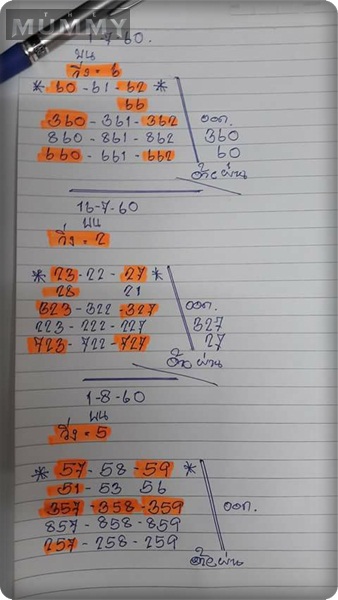 MUMMY
1-7-60.
บน
วิ่ง = 6
* 60 - 61 - 62 *
66
360 - 361 - 362
860 - 861 - 862
660 - 661 - 662
ออก.
360
60
16-7-60
บน
วิ่ง = 2
* 23 - 22 - 27 *
28 21
323 - 322 - 327
223 - 222 - 227
723 - 722 - 727
ออก.
327
27
1-8-60
บน
วิ่ง = 5
* 57 - 58 - 59 *
51 - 53 56
357 - 358 - 359
857 - 858 - 859
257 - 258 - 259
ออก.